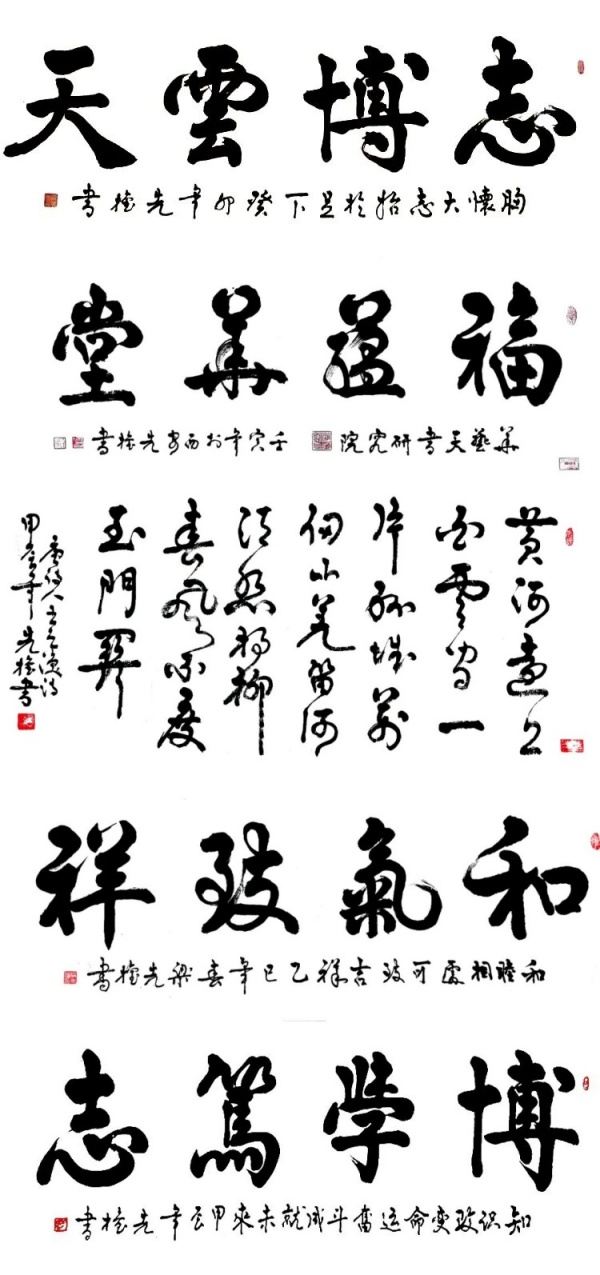 志博雲天
胸懷大志始於足下癸卯年先書
福蘊華堂
華藝天書研究院壬寅年於西安先書
黃河遠上
白雲間一
片孤城萬
仞山羌笛何
須怨楊柳
春風不度
玉門關
唐詩人王之渙詩
甲辰年先書
和氣致祥
和睦相處可致吉祥乙巳年春梁先書
博學篤志
知识改變命运奮斗成就未來甲辰年先書